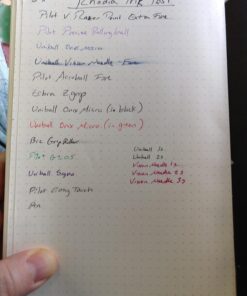 Rhodia Ink Test
Pilot V Razor Point Extra Fine
Pilot Precise Rollingball
Uniball Onyx Micro
Uniball Vision Needle Fine
Pilot Acroball Fine
Zebra Z grip
Uniball Onyx Micro (in black)
Uniball Onyx Micro (in green)
Bic
Pilot G2 05
Uniball Signo
Pilot Easy Touch
Pen
Uniball 1x
Uniball 2x
Vision Needle 1x
Vision Needle 2x
Vision Needle 3x